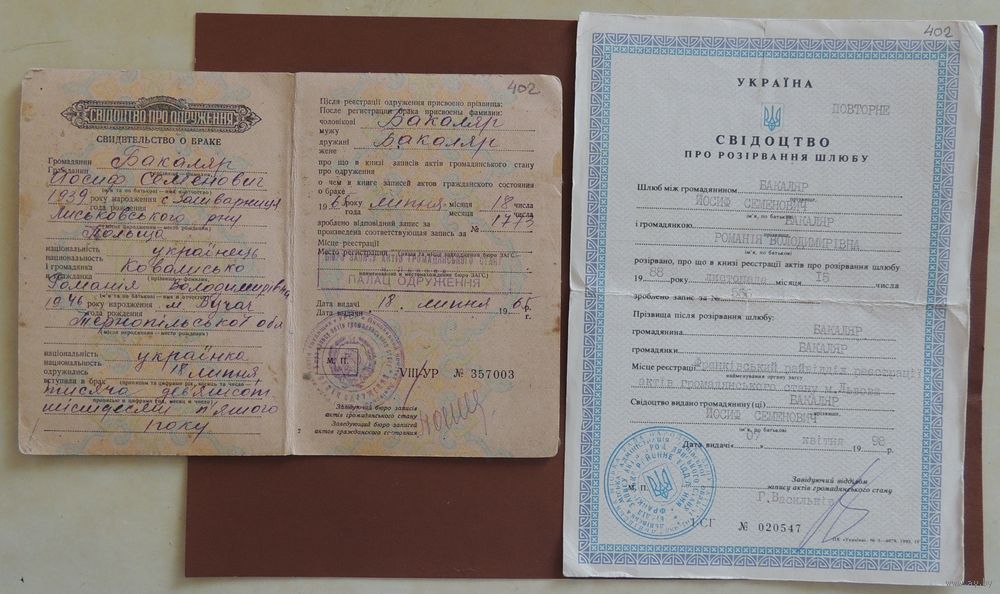 СВІДОЦТВО ПРО ОДРУЖЕННЯ
СВИДЕТЕЛЬСТВО О БРАКЕ
Громадянин Бакаляр
Гражданин
Йосиф Семенович
(ім'я та по батькові — имя и отчество)
1939 року народження с. Залиарниця
года рождения
Лисковського р-ну
(місце народження — место рождения)
Польща
національність українець
национальность
і громадянка Ковалисько
и гражданка
Романія Володимирівна
(ім'я та по батькові — имя и отчество)
1946 року народження м. Бучач
года рождения
Тернопільської обл
(місце народження — место рождения)
національність українка
национальность
одружились 18 липня
вступили в брак (прописом та цифрами рік, місяць та число —
тисяча дев'ятсот
прописью и цифрами год, месяц и число)
шістдесят п'ятого
року
402
Після реєстрації одруження присвоєно прізвища:
После регистрации брака присвоены фамилии:
чоловікові Бакаляр
мужу
дружині Бакаляр
жене
про що в книзі записів актів громадянського стану
про одруження
о чем в книге записей актов гражданского состояния
о браке
1965 року липня місяця 18 числа
года месяца числа
зроблено відповідний запис за № 1773
произведена соответствующая запись за
Місце реєстрації
Место регистрации
ПАЛАЦ ОДРУЖЕННЯ
Дата видачі 18 липня 1965 р.
Дата выдачи г.
М. П.
VIII-УР № 357003
Завідуючий бюро записів
актів громадянського стану
Заведующий бюро записей
актов гражданского состояния
402
УКРАЇНА
ПОВТОРНЕ
СВІДОЦТВО
ПРО РОЗІРВАННЯ ШЛЮБУ
Шлюб між громадянином БАКАЛЯР
прізвище,
ЙОСИФ СЕМЕНОВИЧ
ім'я, по батькові
і громадянкою БАКАЛЯР
прізвище,
РОМАНІЯ ВОЛОДИМИРІВНА
ім'я, по батькові
розірвано, про що в книзі реєстрації актів про розірвання шлюбу
19 88 року листопада місяця 15 числа
зроблено запис за №
Прізвища після розірвання шлюбу:
громадянина БАКАЛЯР
громадянки БАКАЛЯР
Місце реєстрації Франківський райвідділ реєстрації
найменування органу загсу
актів громадянського стану м.Львова
Свідоцтво видано громадянину (ці) БАКАЛЯР
прізвище,
ЙОСИФ СЕМЕНОВИЧ
ім'я, по батькові
Дата видачі „07" квітня 1998 р.
М. П.
Завідуючий відділом
запису актів громадянського стану
Г.Васильків
І-СГ № 020547